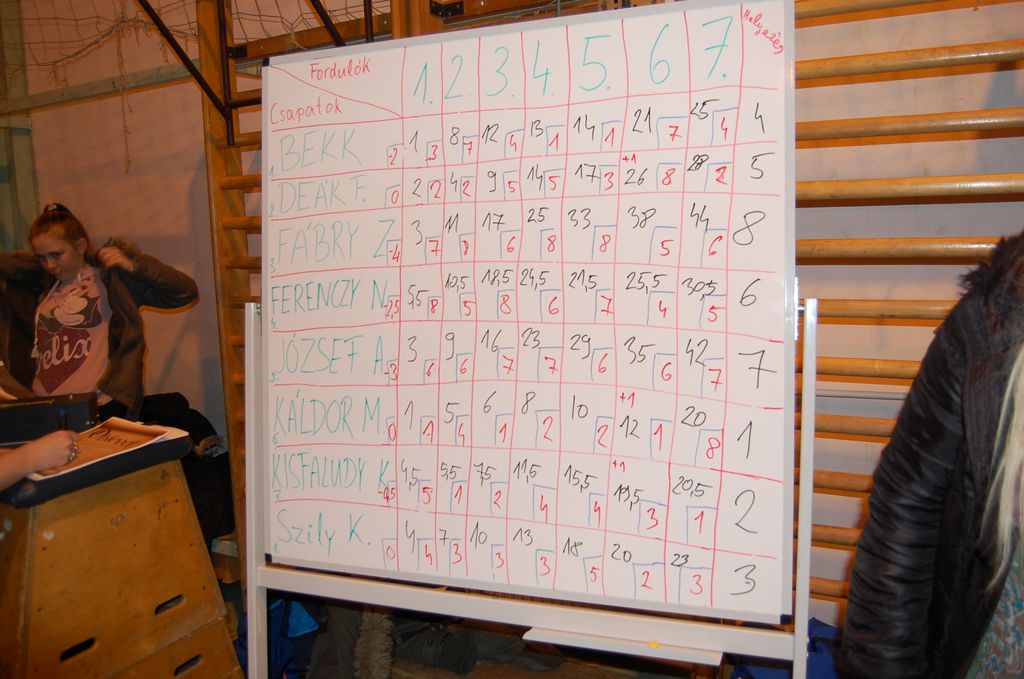 Fordulók 1. 2. 3. 4. 5. 6. 7. Helyezés
Csapatok
1. BEKK -2 1 3 8 7 12 4 13 1 14 1 21 7 25 4 4
2. DEÁK F. 0 2 2 4 2 9 5 14 5 17 3 +1 26 8 28 2 5
3. FÁBRY Z -4 3 7 11 8 17 6 25 8 33 8 38 5 44 6 8
4. FERENCZY N -2,5 5,5 8 10,5 5 18,5 8 24,5 6 21,5 7 25,5 4 30,5 5 6
5. JÓZSEF A -3 3 6 9 6 16 7 23 7 29 6 35 6 42 7 7
6. KÁLDOR M. 0 1 1 5 4 6 1 8 2 10 2 +1 12 1 20 8 1
7. KISFALUDY K -0,5 4,5 5 5,5 1 7,5 2 11,5 4 15,5 4 +1 19,5 3 20,5 1 2
Szily K. 0 4 4 7 3 10 3 13 3 18 5 20 2 23 3 3
elix